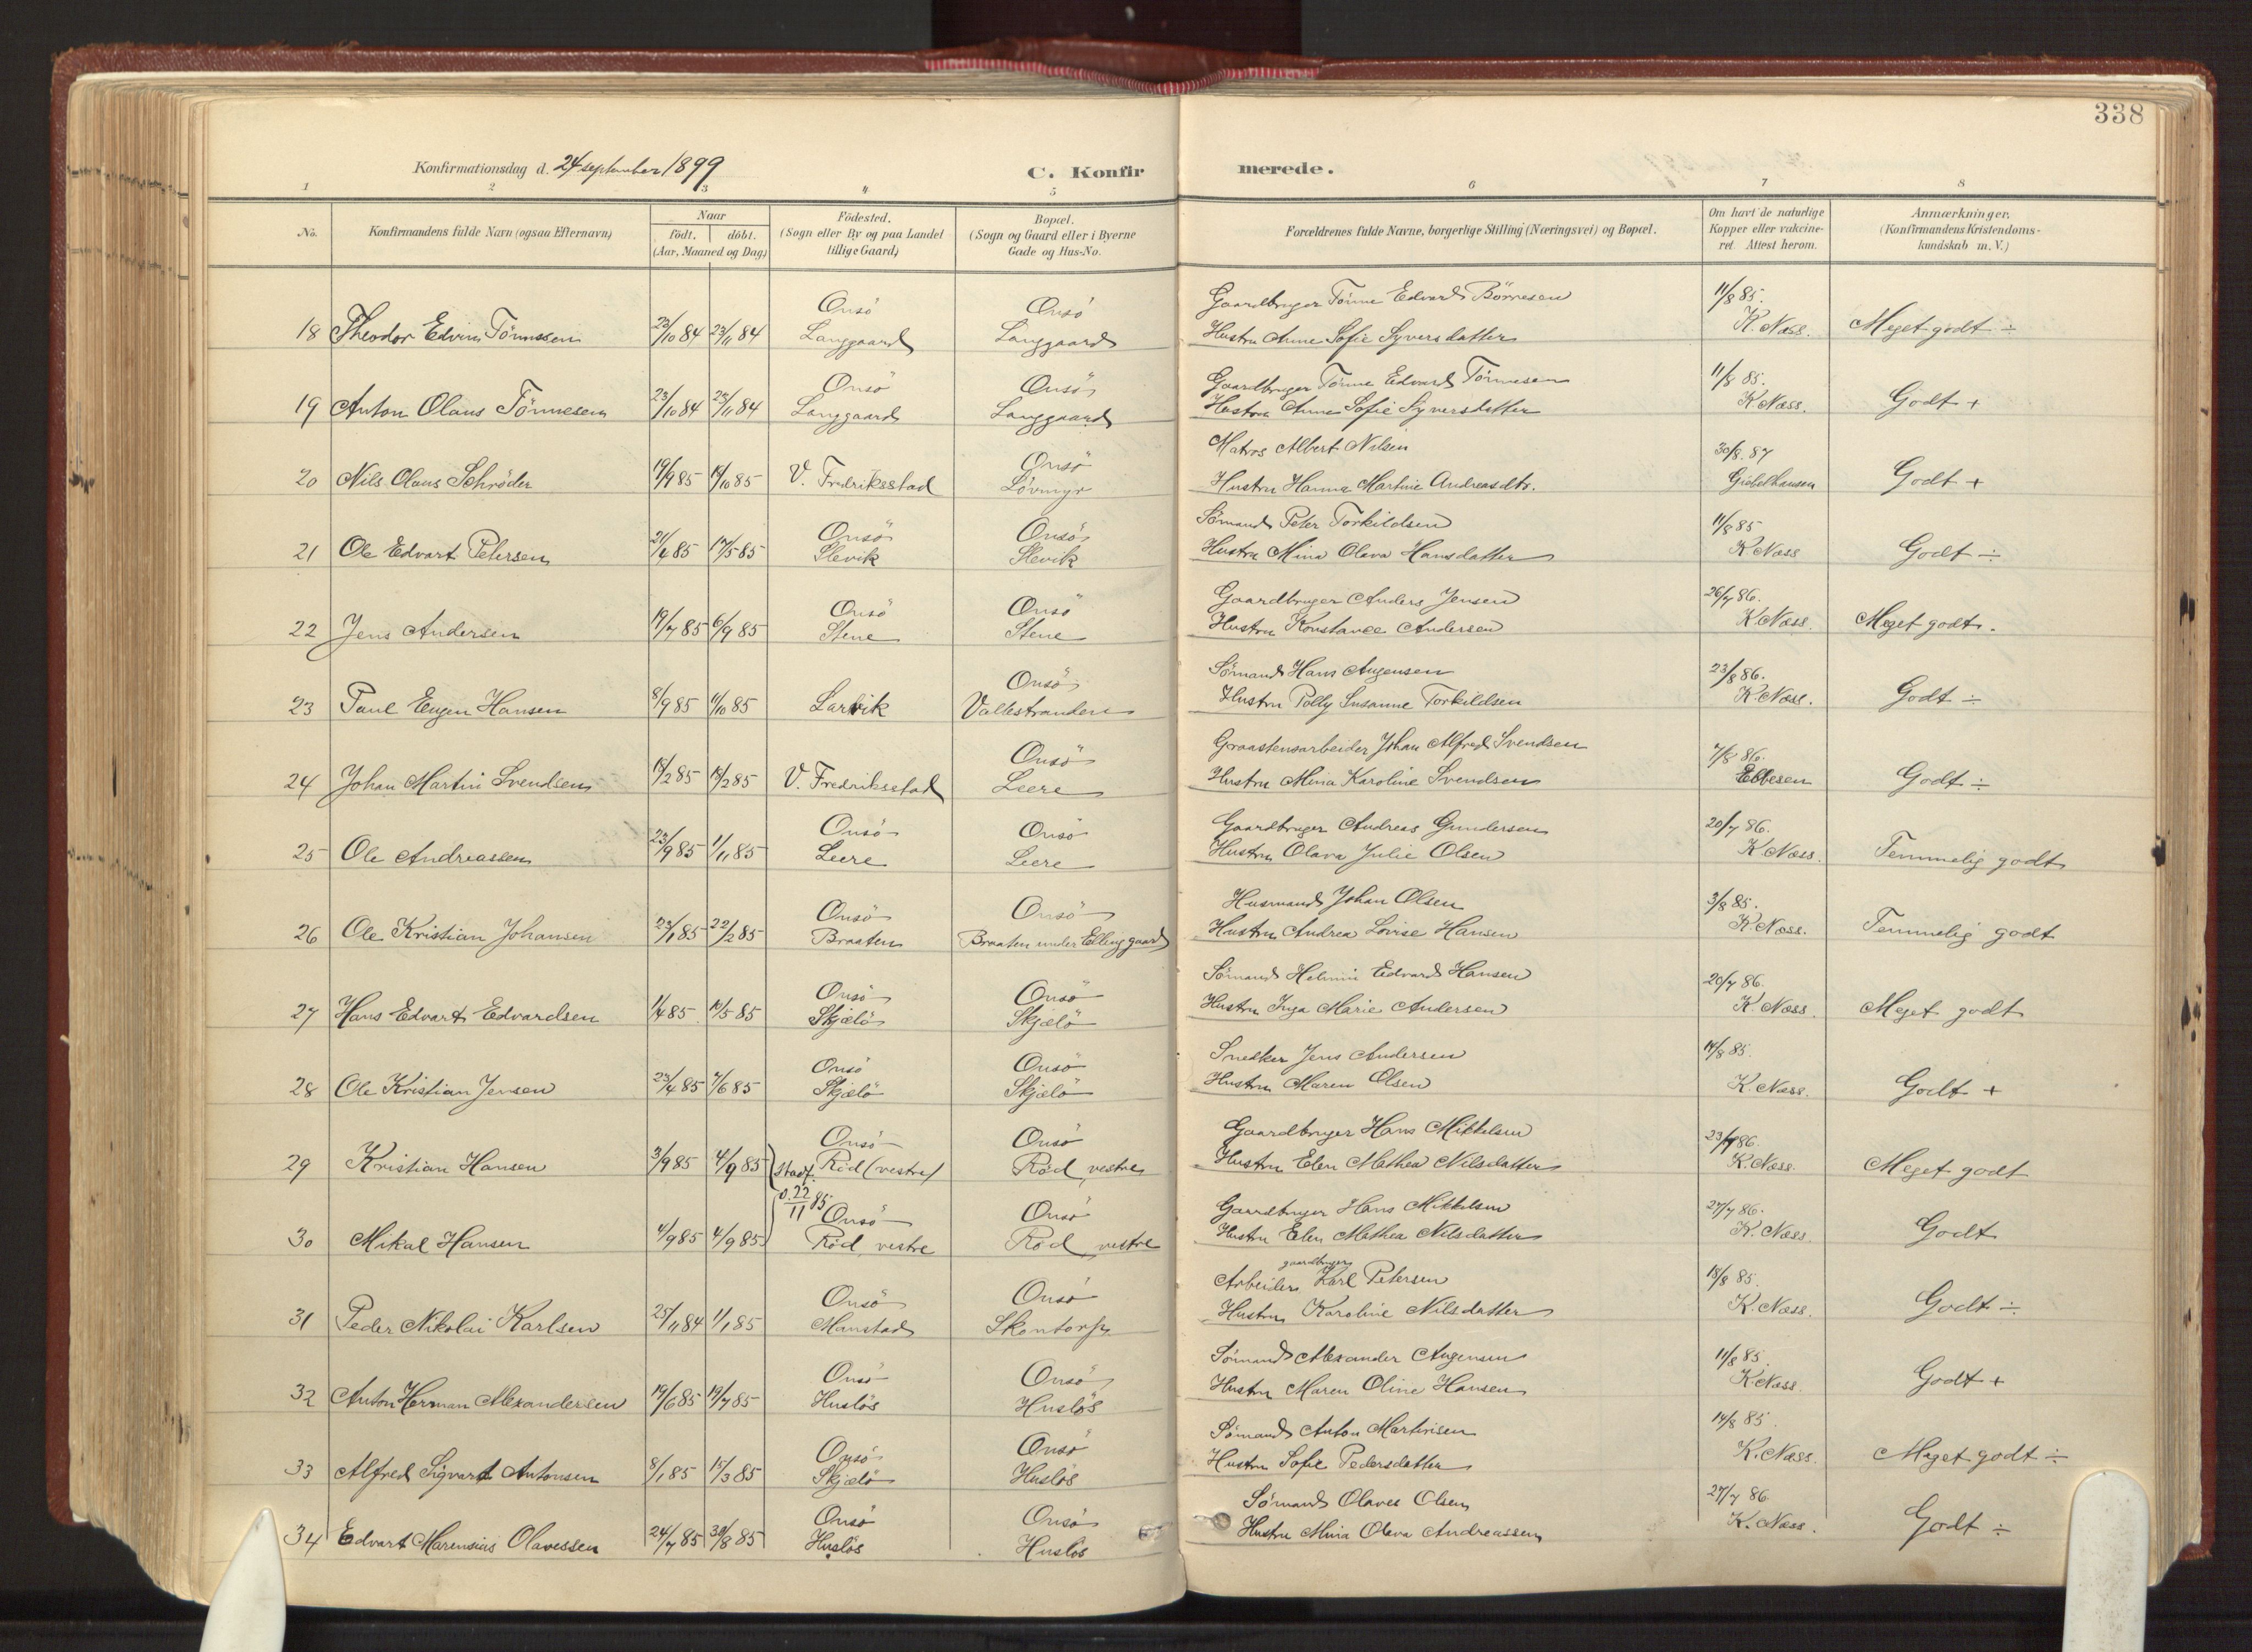 338
Konfirmationsdag d. 24 september 1899
C. Konfirmerede.
1 2 3 4 5 6 7 8
No. Konfirmandens fulde Navn (ogsaa Efternavn) Naar født. døbt. (Aar, Maaned og Dag) Fødested. (Sogn eller By og paa Landet tillige Gaard) Bopæl. (Sogn og Gaard eller i Byerne Gade og Hus-No. Forældrenes fulde Navne, borgerlige Stilling (Næringsvei) og Bopæl. Om havt de naturlige Kopper eller vakcineret. Attest herom. Anmærkninger. (Konfirmandens Kristendomskundskab m. V.)
Onsö Onsö Gaardbruger Tönne Edvard Börresen 11/8 85.
18 Theodor Edvin Tönnesen 23/10 84 23/11 84 Langgaard Langgaard Hustru Anne Sofie Syversdatter K. Næss. Meget godt ÷
Onsö Onsö Gaardbruger Tönne Edvard Tönnesen 11/8 85.
19 Anton Olaus Tönnesen 23/10 84 23/11 84 Langgaard Langgaard Hustru Anne Sofie Syversdatter K. Næss. Godt +
Onsö Matros Albert Nilsen 30/8. 87
20 Nils Olaus Schröder 19/9 85 /10 85 V. Fredriksstad Lövmyr Hustru Hanna Martine Andreasdtr. Giebelhausen Godt +
Onsö Onsö Sömand Peter Torkildsen 11/8 85
21 Ole Edvart Petersen 21/4 85 17/5 85 Slevik Slevik Hustru Mina Olava Hansdatter K Næss Godt ÷
Onsö Onsö Gaardbruger Anders Jensen 26/7 86.
22 Jens Andersen 19/7 85 6/9 85 Stene Stene Hustru Konstance Andersen K Næss. Meget godt.
Onsö Sömand Hans Augensen 23/8 86.
23 Paul Eugen Hansen 8/9 85 11/10 85 Larvik Vallestranden Hustru Polly Susanne Torkildsen K. Næss. Godt ÷
Onsö Graastensarbeider Johan Alfred Svendsen 7/8 86.
24 Johan Martin Svendsen /2 85 /2 85 V. Fredriksstad Leere Hustru Mina Karoline Svendsen Ebbesen Godt ÷
Onsö Onsö Gaardbruger Andreas Gundersen 20/7 86.
25 Ole Andreassen 23/9 85 1/11 85 Leere Leere Hustru Olava Julie Olsen K Næss. Temmelig godt
Onsö Onsö Husmand Johan Olsen 3/8 85.
26 Ole Kristian Johansen 23/1 85 22/2 85 Braaten Braaten under Elling gaard Hustru Andrea Lovise Hansen K. Næss. Temmelig godt
Onsö Onsö Sömand Helmin Edvard Hansen 20/7 86.
27 Hans Edvart Edvardsen 1/4 85 10/5 85 Skjælö Skjælö Hustru Inga Marie Andersen K. Næss. Meget godt
Onsö Onsö Snedker Jens Andersen 14/8 85.
28 Ole Kristian Jensen 23/4 85 7/6 85 Skjælö Skjælö Hustru Maren Olsen K. Næss. Godt +
Onsö Onsö Gaardbruger Hans Mikkelsen 23/7 86.
29 Kristian Hansen 3/9 85 4/9 85 Stadf. Röd (vestre) Röd vestre Hustru Elen Mathea Nilsdatter K. Næss. Meget godt
d. 22/11 85 Onsö Onsö Gaardbruger Hans Mikkelsen 27/7 86.
30 Mikal Hansen 4/9 85 4/9 85 Röd vestre Röd vestre Hustru Elen Mathea Nilsdatter K. Næss. Godt
gaardbruger
Onsö Onsö Arbeider Karl Petersen 18/8 85.
31 Peder Nikolai Karlsen 25/11 84 1/1 85 Manstad Skontorp Hustru Karoline Nilsdatter K. Næss. Godt ÷
Onsö Onsö Sömand Alexander Augensen 11/8 85.
32 Anton Herman Alexandersen 19/6 85 19/7 85 Huslös Huslös Hustru Maren Oline Hansen K. Næss. Godt +
Onsö Onsö Sömand Anton Martinsen 14/8 85.
33 Alfred Sigvart Antonsen 8/1 85 15/3 85 Skjælö Huslös Hustru Sofie Pedersdatter K. Næss. Meget godt ÷
Onsö Onsö Sömand Olaves Olsen 27/7 86.
34 Edvart Marensius Olavessen 24/7 85 30/8 85 Huslös Huslös Hustru Mina Olava Andreassen K. Næss. Godt ÷